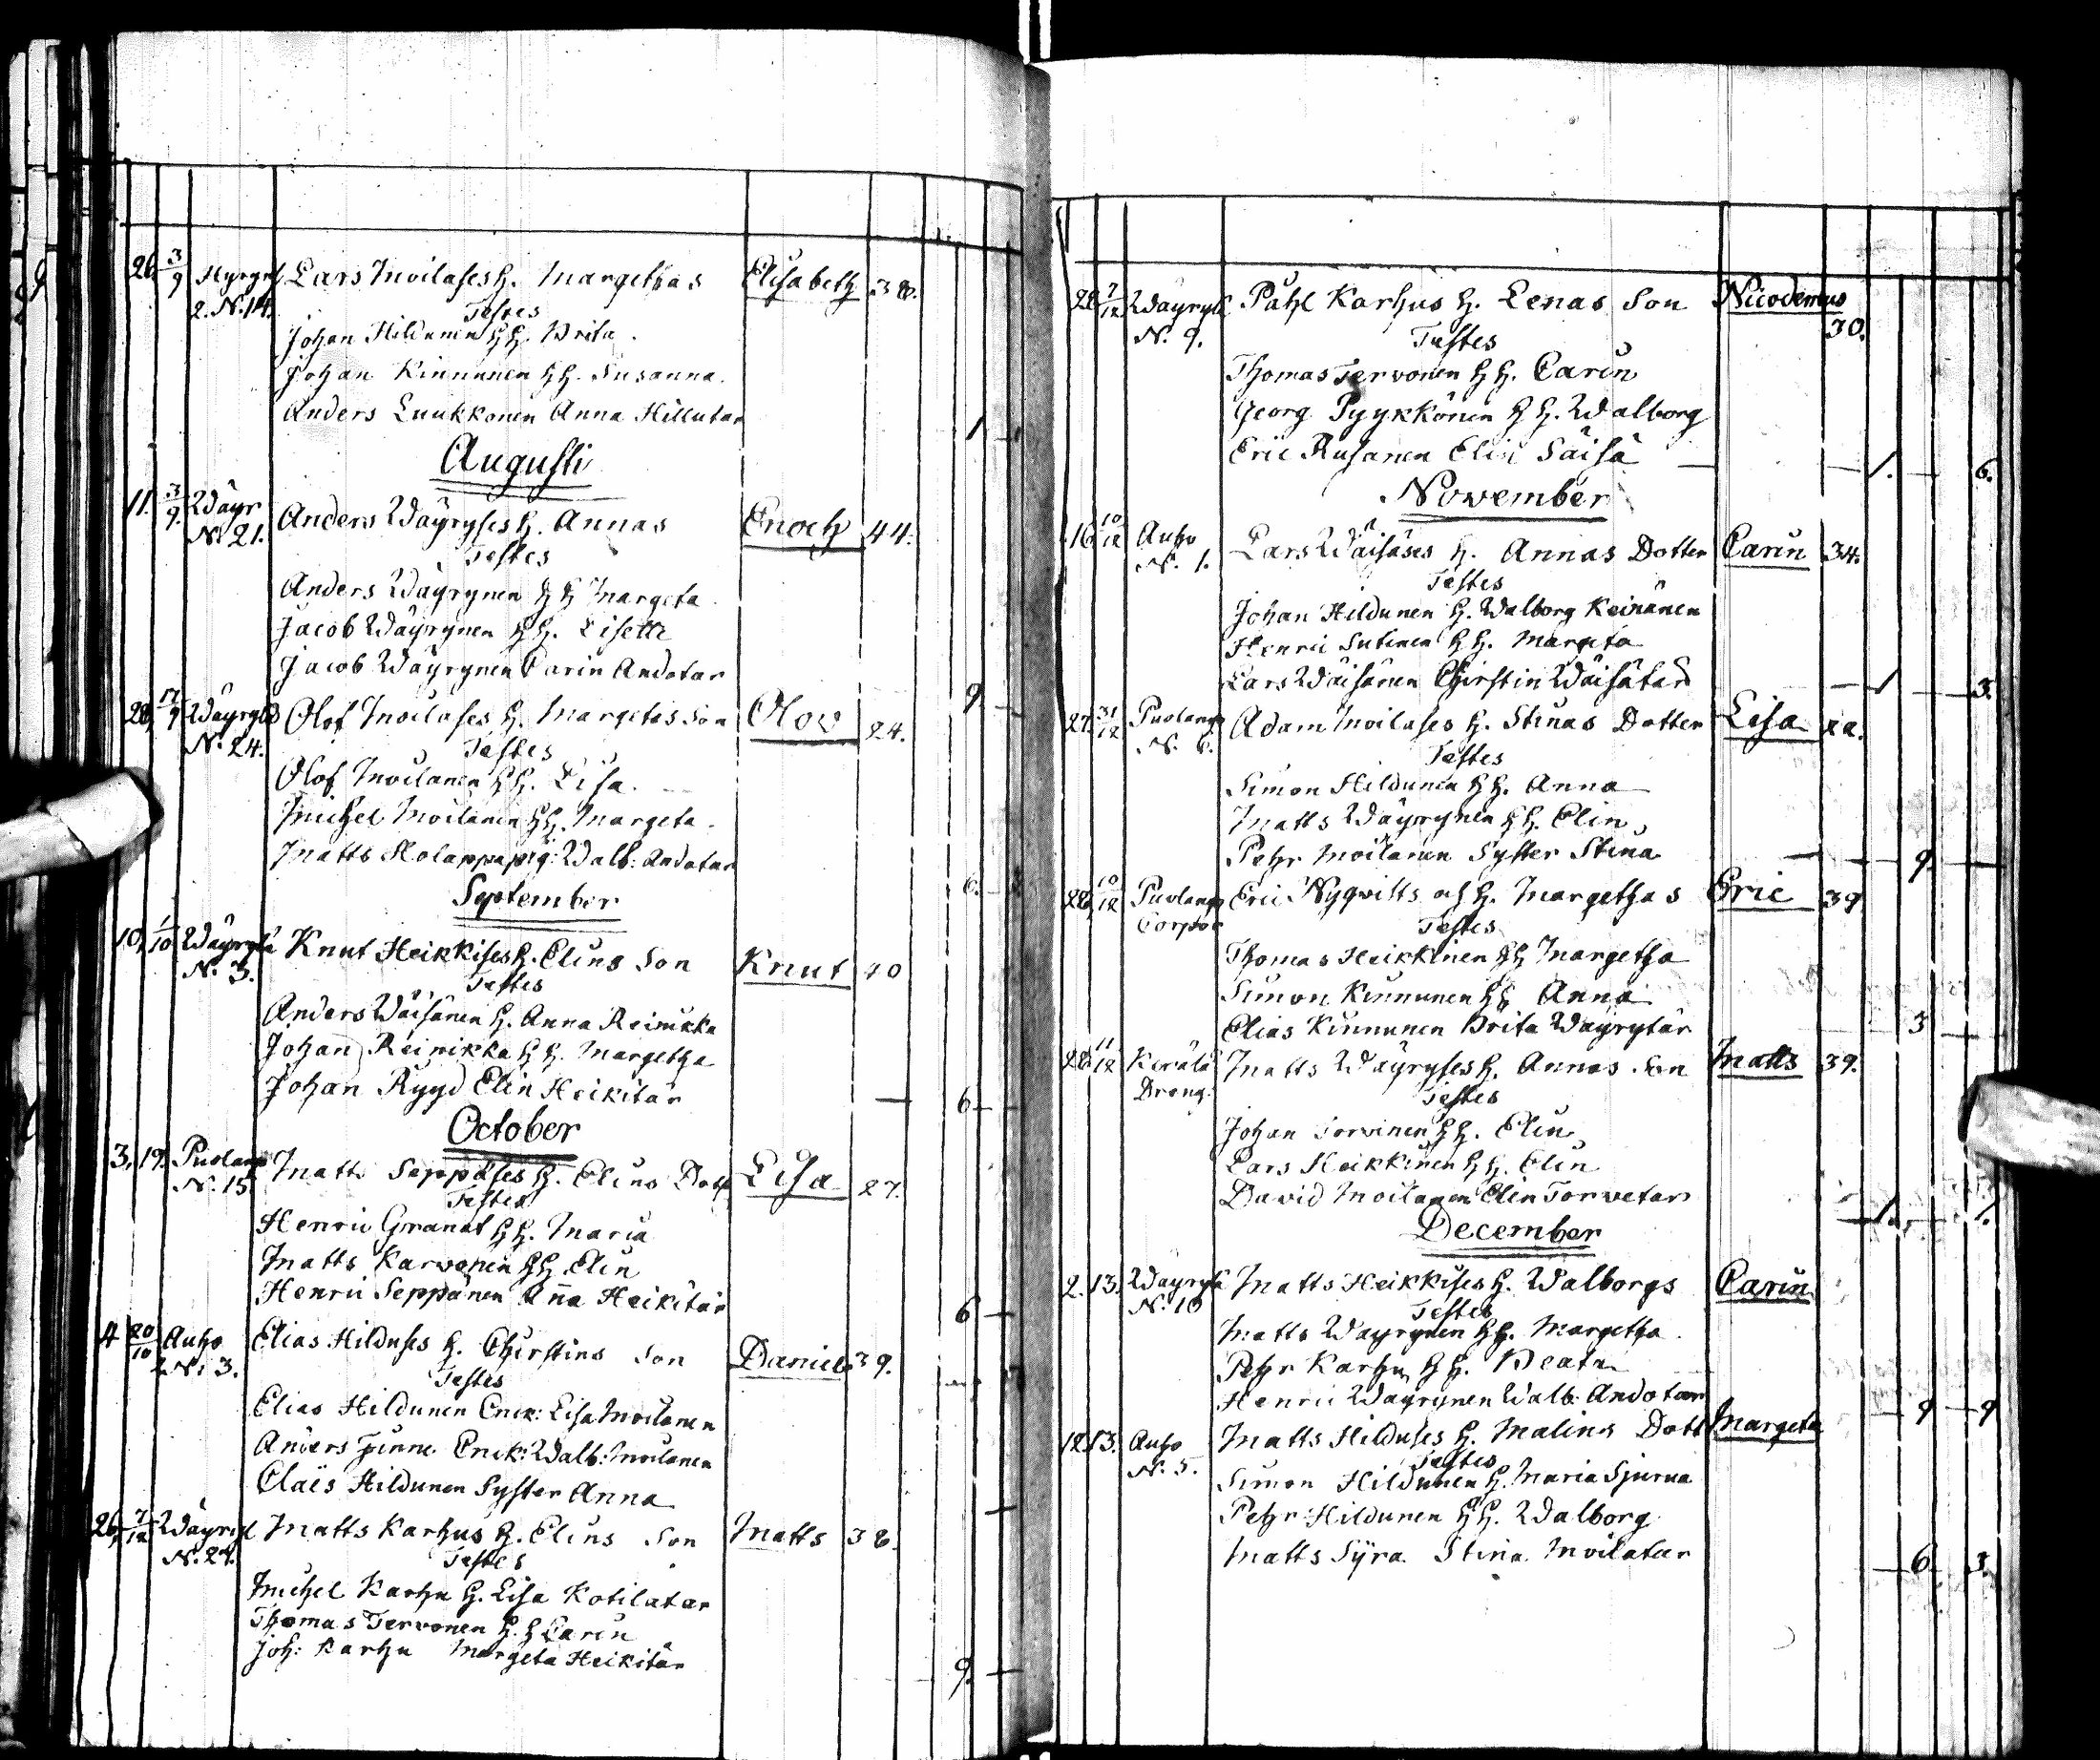 26. 3/9 Hyrynsl Lars Moilases h. Margethas Elisabeth 38.
2. N. 14. Testes
Johan Hildunen h h. Brita.
Johan Kinnunen h h. Susanna.
Anders Luukkonen Anna Hillutar
1
Augusti
11. 3/9. Wäyr Anders Wäyryses h. Annas Enoch 44.
N. 21. Testes
Anders Wäyrynen h h Margeta
Jacob Wäyrynen h h. Lisette
Jacob Wäyrynen Carin Andotar
9
28. 17/9 Wäyryl Olof Moilases h. Margetas Son Olov 24.
N. 24. Testes
Olof Moilanen h h. Lisa.
Michel Moilanen h h. Margeta.
Matts Holappa pig: Walb: Andotar
6.
September
10. 1/10 Wäyrylä Knut Heikkises h. Elins Son Knut 40
N. 3. Testes
Anders Wäisänen h. Anna Reinikka
Johan Reinikka h h. Margetha
Johan Rygd Elin Heikitär
6
October
3. 19. Puolang Matts Seppäses h. Elins Dott Lisa 27.
N. 15 Testes
Henric Granat h h. Maria
Matts Karvonen h h. Elin
Henric Seppänen Anna Heikitär
6
4 20/10 Auho Elias Hilduses h. Chirstins Son Daniel 39.
2 N. 3. Testes
Elias Hildunen Enck: Lisa Moilanen
Anders Junn. Enck: Walb: Moilanen
Claës Hildunen Syster Anna
26. 7/12 Wäyryl Matts Karhus h. Elins Son Matts 38.
N. 27. Testes
Michel Karhu h. Lisa Kotilatar
Thomas Tervonen h. h Carin
Joh: Karhu Margeta Heikitär
9.
28 7/12 Wäyryl Påhl Karhus h. Lenas Son Nicodemus
N. 9. Testes 30.
Thomas Tervonen h h. Carin
Georg Pyykkönen h h. Walborg
Eric Rusanen Elin Säisä
1. 6.
November
16. 10/12 Auho Lars Wäisäses h. Annas Dotter Carin 34.
N. 1. Testes
Johan Hildunen h. Walborg Keinänen
Henric Sutinen h h. Margeta
Lars Wäisänen Chirstin Wäisätär
1 3.
27. 31/12 Puolang Adam Moilases h. Stinas Dotter Lisa 22.
N. 6. Testes
Simon Hildunen h h. Anna
Matts Wäyrynen h h. Elin
Pehr Moilanen Syster Stina
9.
28. 10/12 Puolang Eric Nyqvists och h. Margethas Eric 39
Corpor Testes
Thomas Heikkinen h h Margetha
Simon Kinnunen h h Anna
Elias Kinnunen Brita Wäyrytär
3
28. 11/12 Kerälä Matts Wäyryses h. Annas Son Matts 39.
Dreng. Testes
Johan Torvinen h h. Elin
Lars Heikkinen h h. Elin
David Moilanen Elin Torvetar
1. 1.
December
2. 13. Wäyrylä Matts Heikkises h. Walborgs Carin
N. 10 Testes
Matts Wäyrynen h h. Margetha.
Pehr Karhu h h. Beata
Henric Wäyrynen Walb. Andotar
9 9
12. 13. Auho Matts Hilduses h. Malins Dott Margeta
N. 5. Testes
Simon Hildunen h. Maria Sjurua
Pehr Hildunen h h. Walborg
Matts Syra. Stina Moilatar
6 3.